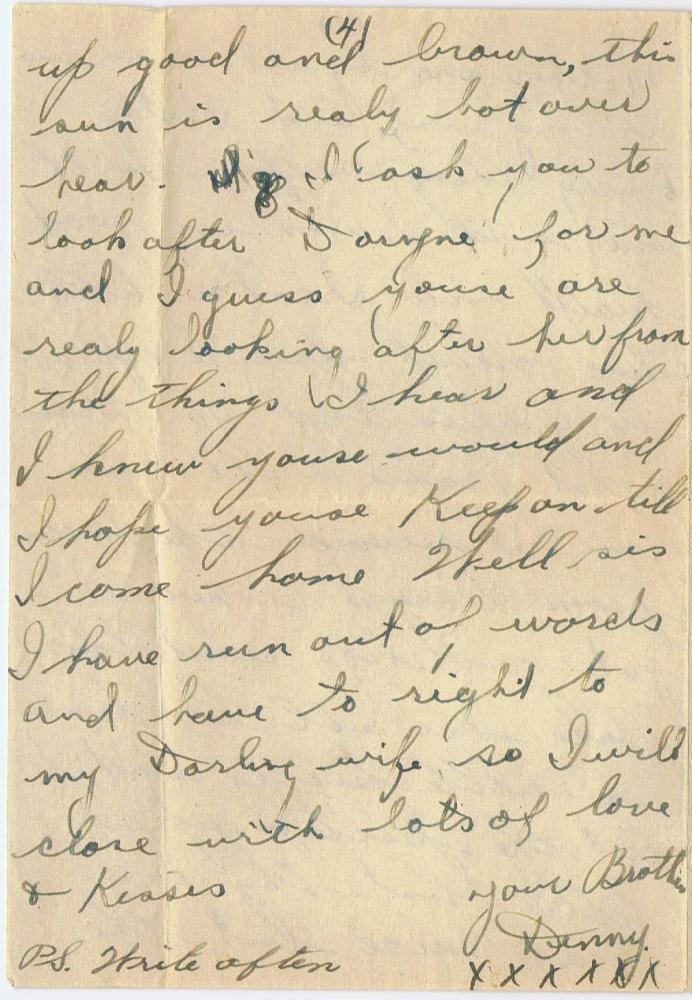 (4)
up good and brown, this
sun is realy hot over
hear. I ask you to
look after Doryne for me
and I guess youse are
realy looking after her from
the things I hear and
I knew youse would and
I hope youse Keep on till
I come home Well sis
I have run out of words
and have to right to
my Darling wife so I will
close with lots of love
& Kisses your Brother
Denny.
P.S. Write often x x x x x x